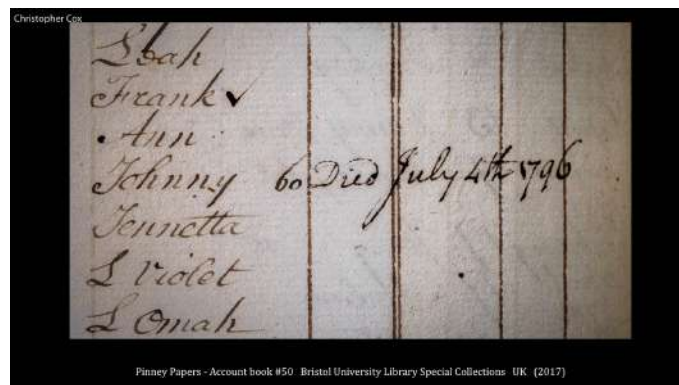 Christopher Cox
Leah
Frank ✓
Ann
Johnny 60 Died July 4th 1796
Jennetta
L Violet
L Omah
Pinney Papers - Account book #50 Bristol University Library Special Collections UK (2017)